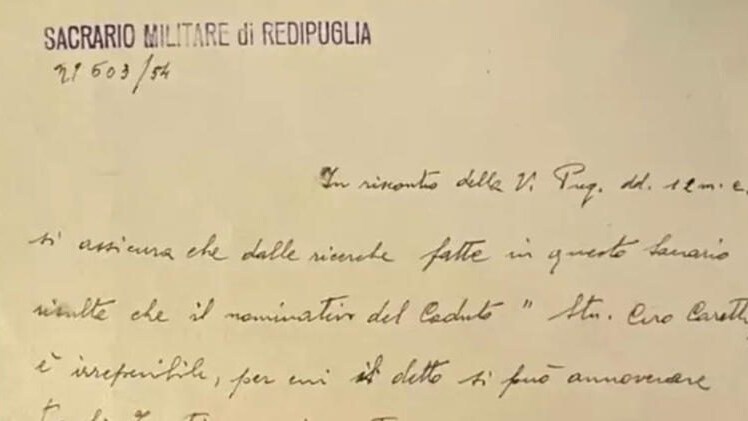 SACRARIO MILITARE di REDIPUGLIA
N° 603/54
In riscontro della V. Preg. dd. 12 m. c.
si assicura che dalle ricerche fatte in questo Sacrario
risulta che il nominativo del Caduto " Stn. Ciro Caretti
è irreperibile, per cui il detto si può annoverare